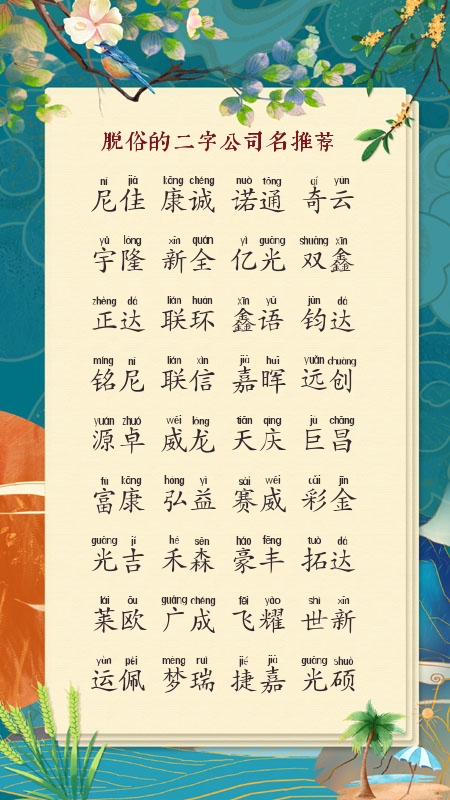 脱俗的二字公司名推荐
ní jiā kāng chéng nuò tōng qí yún
尼佳 康诚 诺通 奇云
yǔ lóng xīn quán yì guāng shuāng xīn
宇隆 新全 亿光 双鑫
zhèng dá lián huán xīn yǔ jūn dá
正达 联环 鑫语 钧达
míng ní lián xìn jiā huī yuǎn chuàng
铭尼 联信 嘉晖 远创
yuán zhuó wēi lóng tiān qìng jù chāng
源卓 威龙 天庆 巨昌
fù kāng hóng yì sài wēi cǎi jīn
富康 弘益 赛威 彩金
guāng jí hé sēn háo fēng tuò dá
光吉 禾森 豪丰 拓达
lái ōu guǎng chéng fēi yào shì xīn
莱欧 广成 飞耀 世新
yùn pèi mèng ruì jié jiā guāng shuò
运佩 梦瑞 捷嘉 光硕